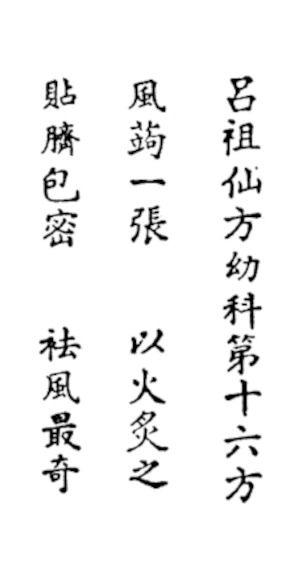 呂祖仙方幼科第十六方
風蒟一張　以火炙之
貼臍包密　袪風最奇